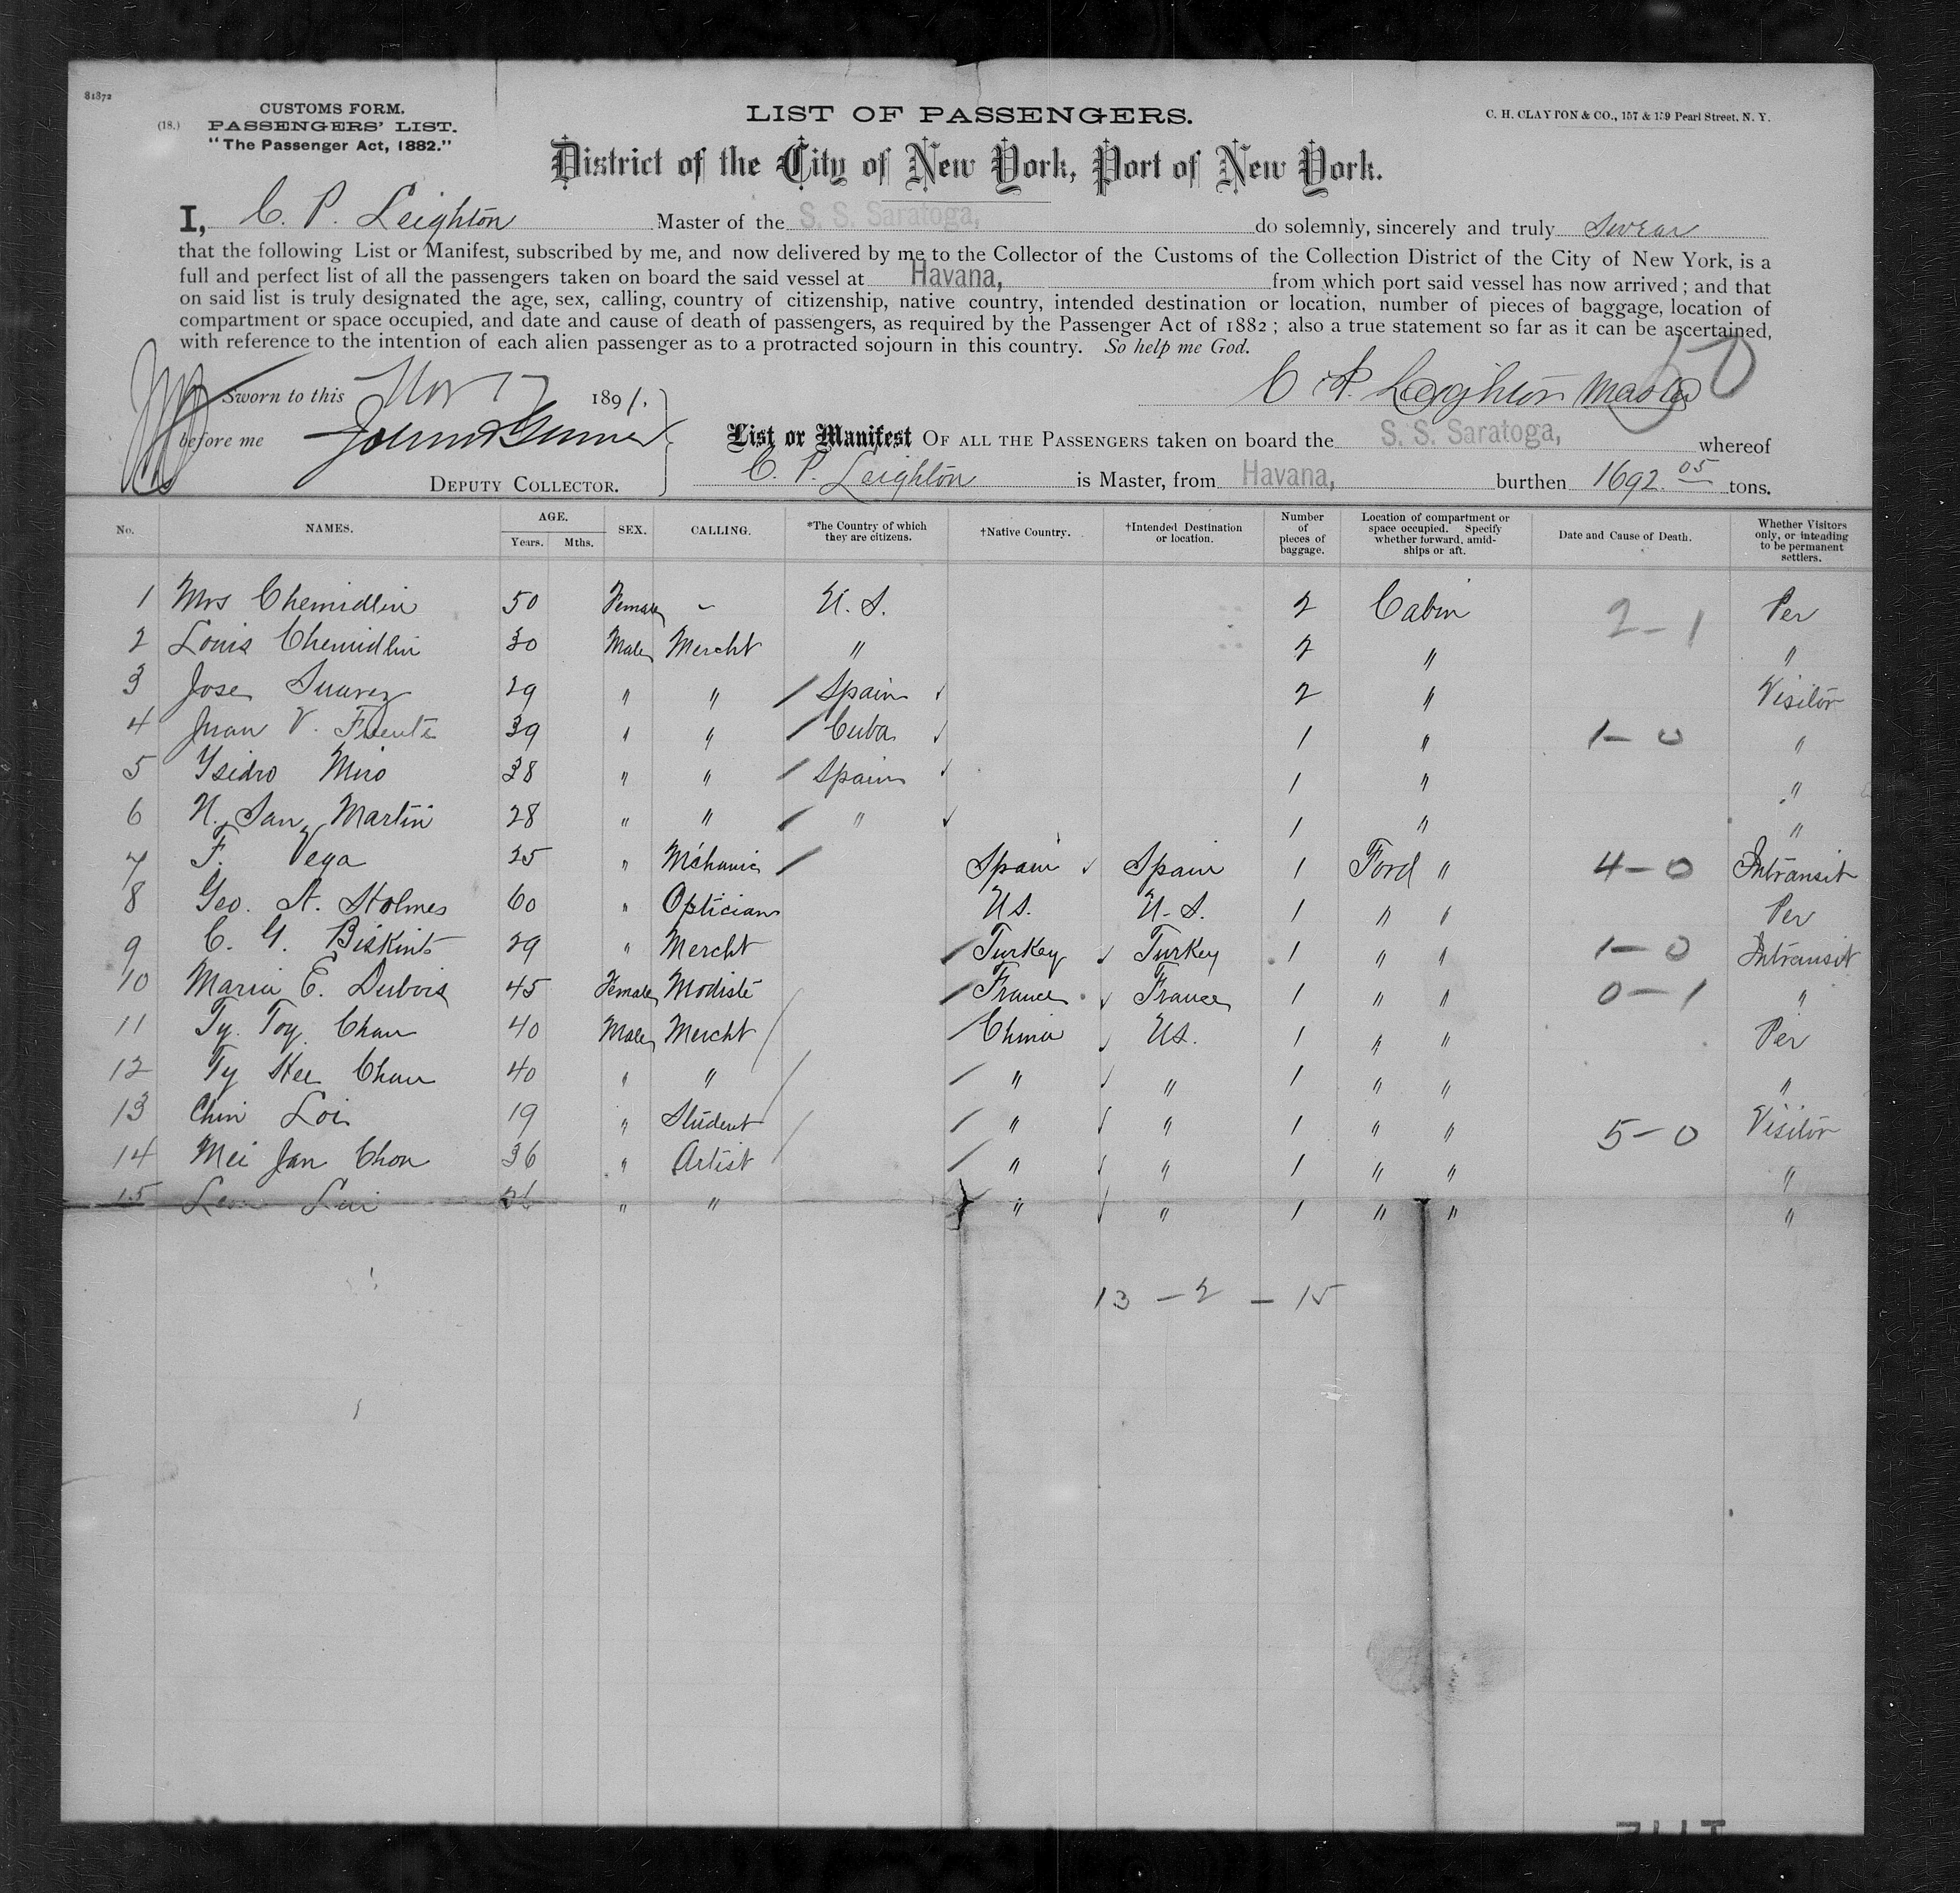 81872
CUSTOMS FORM.
(18.) PASSENGERS' LIST.
"The Passenger Act, 1882."
LIST OF PASSENGERS.
C. H. CLAYTON & CO., 157 & 159 Pearl Street, N. Y.
District of the City of New York, Port of New York.
I, C. P. Leighton Master of the S. S. Saratoga, do solemnly, sincerely and truly swear
that the following List or Manifest, subscribed by me, and now delivered by me to the Collector of the Customs of the Collection District of the City of New York, is a
full and perfect list of all the passengers taken on board the said vessel at Havana, from which port said vessel has now arrived; and that
on said list is truly designated the age, sex, calling, country of citizenship, native country, intended destination or location, number of pieces of baggage, location of
compartment or space occupied, and date and cause of death of passengers, as required by the Passenger Act of 1882; also a true statement so far as it can be ascertained,
with reference to the intention of each alien passenger as to a protracted sojourn in this country. So help me God.
Sworn to this Nov 17 1891. C. P. Leighton Master
before me
DEPUTY COLLECTOR.
List or Manifest OF ALL THE PASSENGERS taken on board the S. S. Saratoga, whereof
C. P. Leighton is Master, from Havana, burthen 1692.05 tons.
No. NAMES. AGE. Years. Mths. SEX. CALLING. *The Country of which they are citizens. †Native Country. †Intended Destination or location. Number of pieces of baggage. Location of compartment or space occupied. Specify whether forward, amidships or aft. Date and Cause of Death. Whether Visitors only, or intending to be permanent settlers.
1 Mrs Chemidlin 50 Female - U. S. 2 Cabin 2-1 Per
2 Louis Chemidlin 30 Male Mercht " 2 " "
3 Jose Suarez 29 " " Spain 2 " Visitor
4 Juan V. Fuente 39 " " Cuba 1 " 1-0 "
5 Ysidro Miro 38 " " Spain 1 " "
6 N. San Martin 28 " " " 1 " "
7 F. Vega 25 " Mchanic Spain Spain 1 Ford " 4-0 Intransit
8 Geo. A. Holmes 60 " Optician US. U. S. 1 " " Per
9 C. G. Biskint 29 " Mercht Turkey Turkey 1 " " 1-0 Intransit
10 Maria E. Dubois 45 Female Modiste France France 1 " " 0-1 "
11 Ty Toy Chan 40 Male Mercht China US. 1 " " Per
12 Ty Kee Chan 40 " " " " 1 " " "
13 Chin Loi 19 " Student " " 1 " " 5-0 Visitor
14 Mei Jan Chon 36 " Artist " " 1 " " "
15 Lui " " " " 1 " " "
13 - 2 - 15